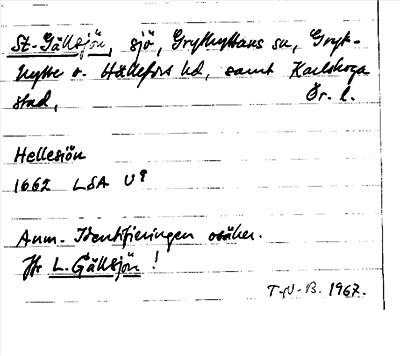 St. Gällsjön, sjö, Grythyttans sn, Gryt-
hytte o. Hällefors hd, samt Karlskoga
stad, Ör. l.
Hellesiön
1662 LSA U?
Anm. Identifieringen osäker.
Jfr L. Gällsjön!
1967.